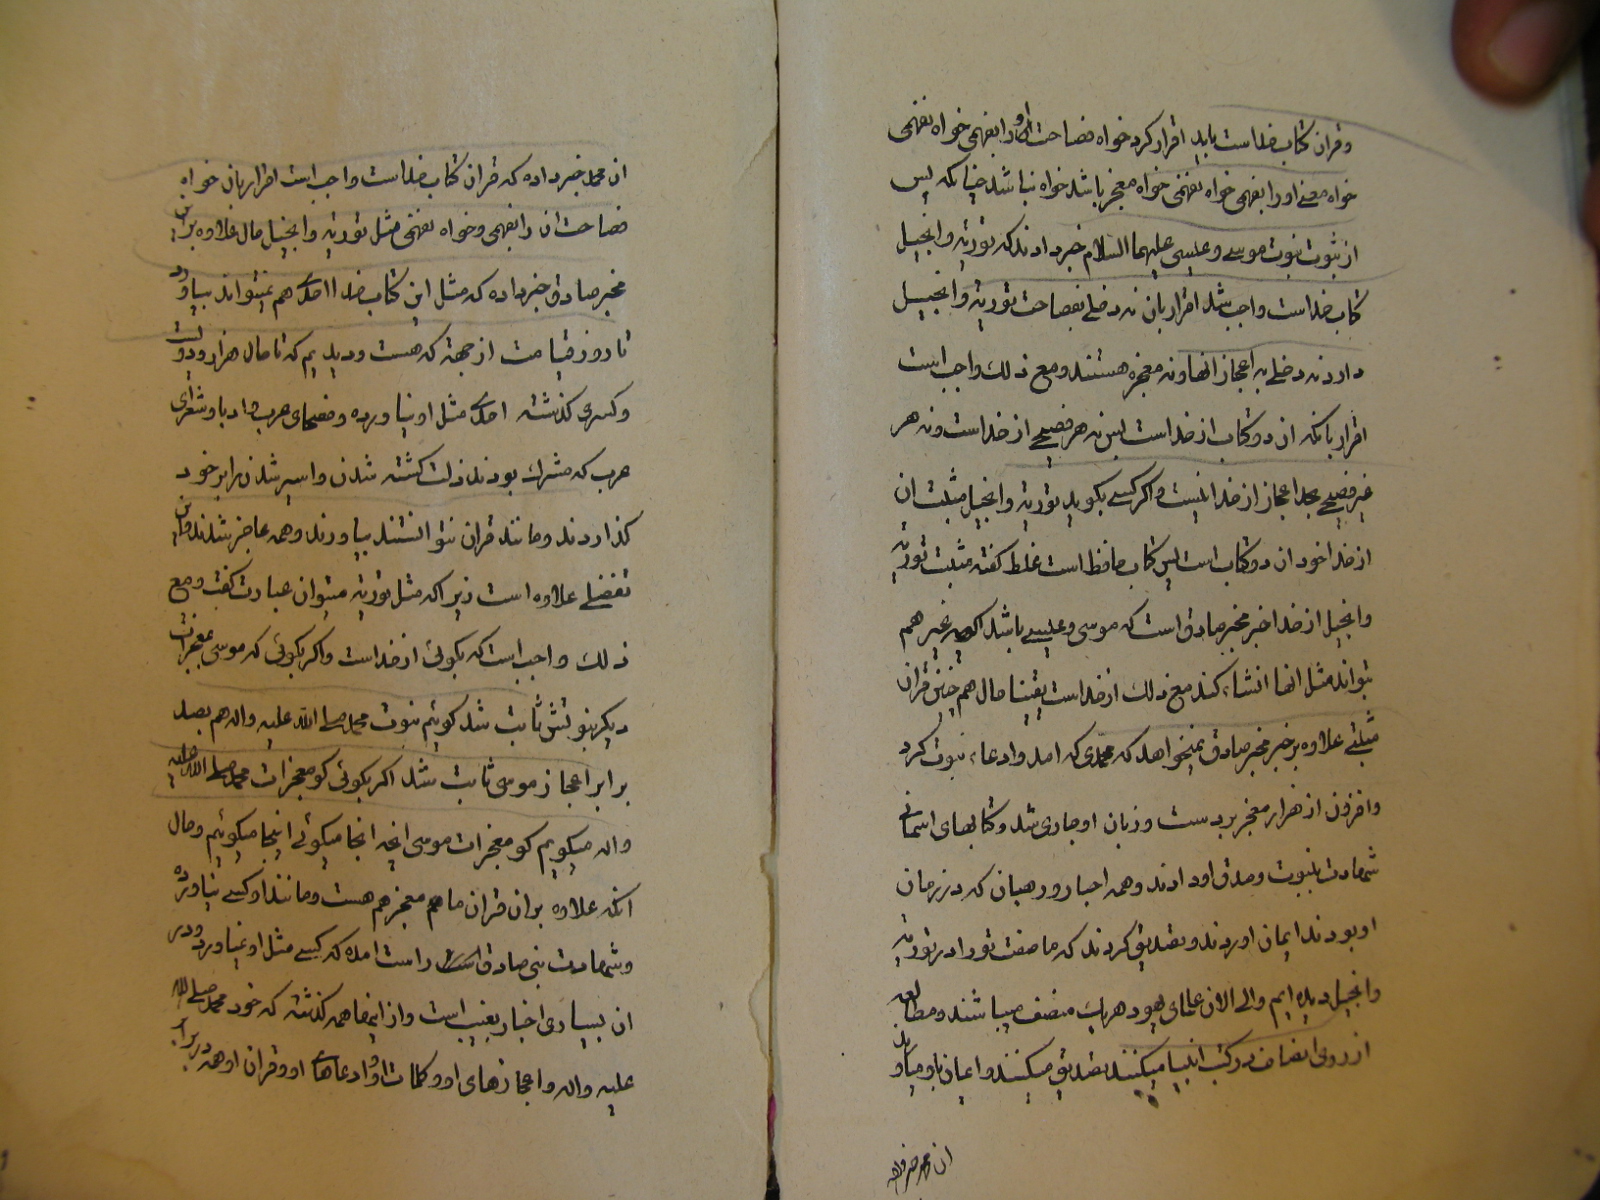 وقران کتاب خداست باید اقرار کرد خواه فصاحت او را بفهمی خواه نفهمی
خواه معنی او را بفهمی خواه نفهمی خواه معجز باشد خواه نباشد چنانکه پس
از ثبوت نبوت موسی و عیسی علیهما السلام خبر دادند که توریة و انجیل
کتاب خداست واجب شد اقرار بان نه دخلی بفصاحت توریة و انجیل
دارد نه دخلی به اعجاز انها و نه معجزه هستند و مع ذلک واجب است
اقرار بانکه ان دو کتاب از خداست پس نه هر فصیحی از خداست و نه هر
غیر فصیحی بحد اعجاز از خدا نیست و اگر کسی بگوید توریة و انجیل مثبت ان
از خدا خود ان دو کتاب است پس کتاب حافظ است غلط گفته مثبت توریة
و انجیل از خدا خبر مخبر صادق است که موسی و عیسی باشد اگرچه غیر هم
بتواند مثل انها انشاء کند مع ذلک از خداست یقینا حال هم چنین قران
مثبتی علاوه بر خبر مخبر صادق نمیخواهد که محمدی که امد و ادعاء نبوت کرد
و افزون از هزار معجز بر دست و زبان او جاری شد و کتابهای اسمانی
شهادت بنبوت و صدق او دادند و همه احبار و رهبان که در زمان
او بودند ایمان اوردند و تصدیق کردند که ما صفت تو را در توریة
و انجیل دیده ایم و الی الان علمای یهود هر یک منصف میباشند و مطالعه
از روی انصاف در کتب انبیا میکنند تصدیق میکنند و ایمان باو میاورند
ان محمد خبر داده
ان محمد خبر داده که قران کتاب خداست واجب است اقرار بان خواه
فصاحت ان را بفهمی و خواه نفهمی مثل توریة و انجیل حال علاوه بر این
مخبر صادق خبر داده که مثل این کتاب خدا احدی هم نمیتواند بیاورد
تا روز قیامت از جهة که هست و دیدیم که تا حال هزار و دویست
و کسری گذشته احدی مثل او نیاورده و فصحای عرب و ادبا و شعرای
عرب که مشرک بودند ذلت کشته شدن و اسیر شدن را بر خود
گذاردند و مانند قران نتوانستند بیاورند و همه عاجز شدند و این
تفضلی علاوه است زیرا که مثل توریة میتوان عبارت گفت و مع
ذلک واجب است که بگوئی از خداست و اگر بگوئی که موسی بمعجزات
دیگر نبوتش ثابت شد گوئیم نبوت محمد صلی الله علیه و اله هم بصد
برابر اعجاز موسی ثابت شد اگر بگوئی کو معجزات محمد صلی الله علیه
و اله میگویم کو معجزات موسی انچه انجا میگوئی اینجا میگوئیم و حال
انکه علاوه بر ان قران ما هم معجز هم هست و مانند او کسی نیاورده
و شهادت نبی صادق است راست امده که کسی مثل او نمیاورد و در
ان بسیاری اخبار بغیب است و از اینها همه گذشته که خود محمد صلی الله
علیه و اله و اعجازهای او و کلمات او و ادعاهای او و قران او همه در برابر